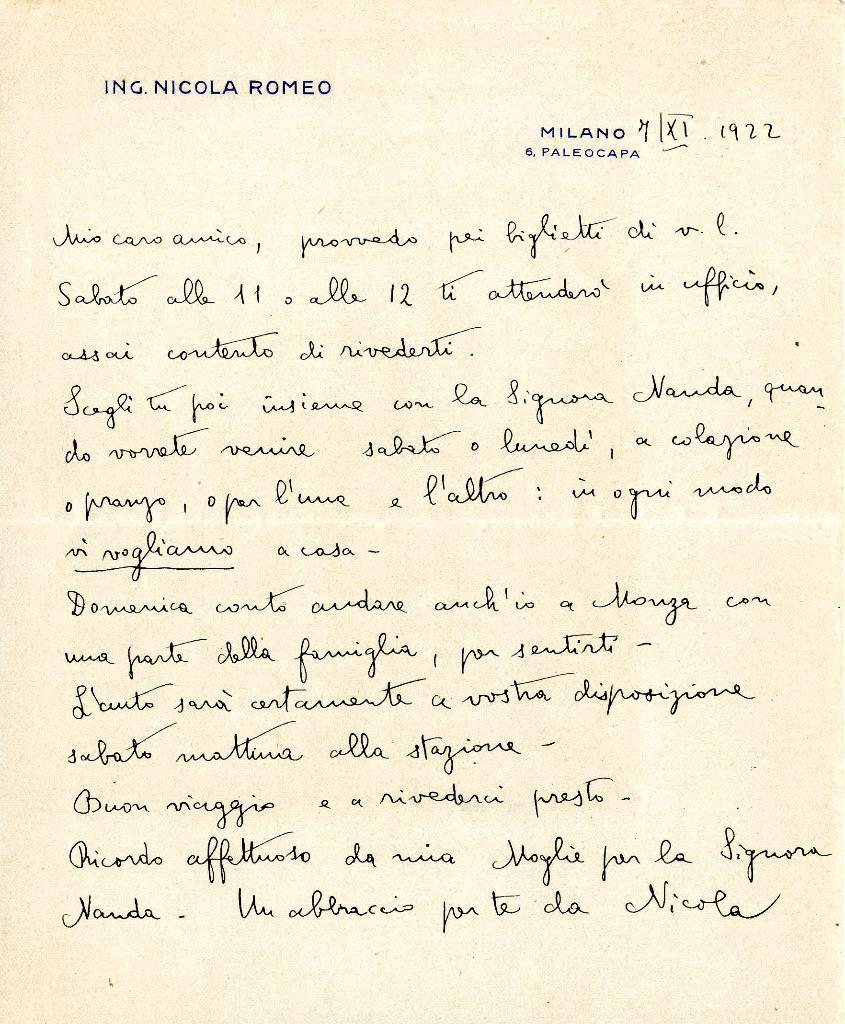 ING. NICOLA ROMEO
MILANO 7/XI. 1922
6, PALEOCAPA
Mio caro amico, provvedo pei biglietti di v. l.
Sabato alle 11 o alle 12 ti attenderò in ufficio,
assai contento di rivederti.
Scegli tu poi insieme con la Signora Nanda, quan
do vorrete venire sabato o lunedì, a colazione
o pranzo, o per l'una e l'altro: in ogni modo
vi vogliamo a casa -
Domenica conto andare anch'io a Monza con
una parte della famiglia, per sentirti -
L'auto sarà certamente a vostra disposizione
sabato mattina alla stazione -
Buon viaggio e a rivederci presto -
Ricordo affettuoso da mia Moglie per la Signora
Nanda - Un abbraccio per te da Nicola